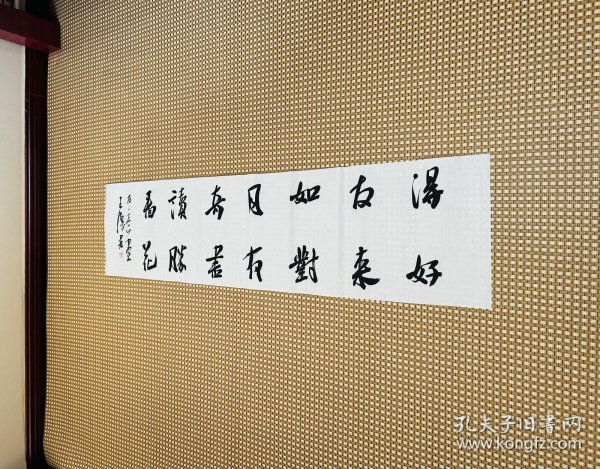 得好
友来
如對
月有
奇書
讀勝
看花
孔夫子旧书网
www.kongfz.com